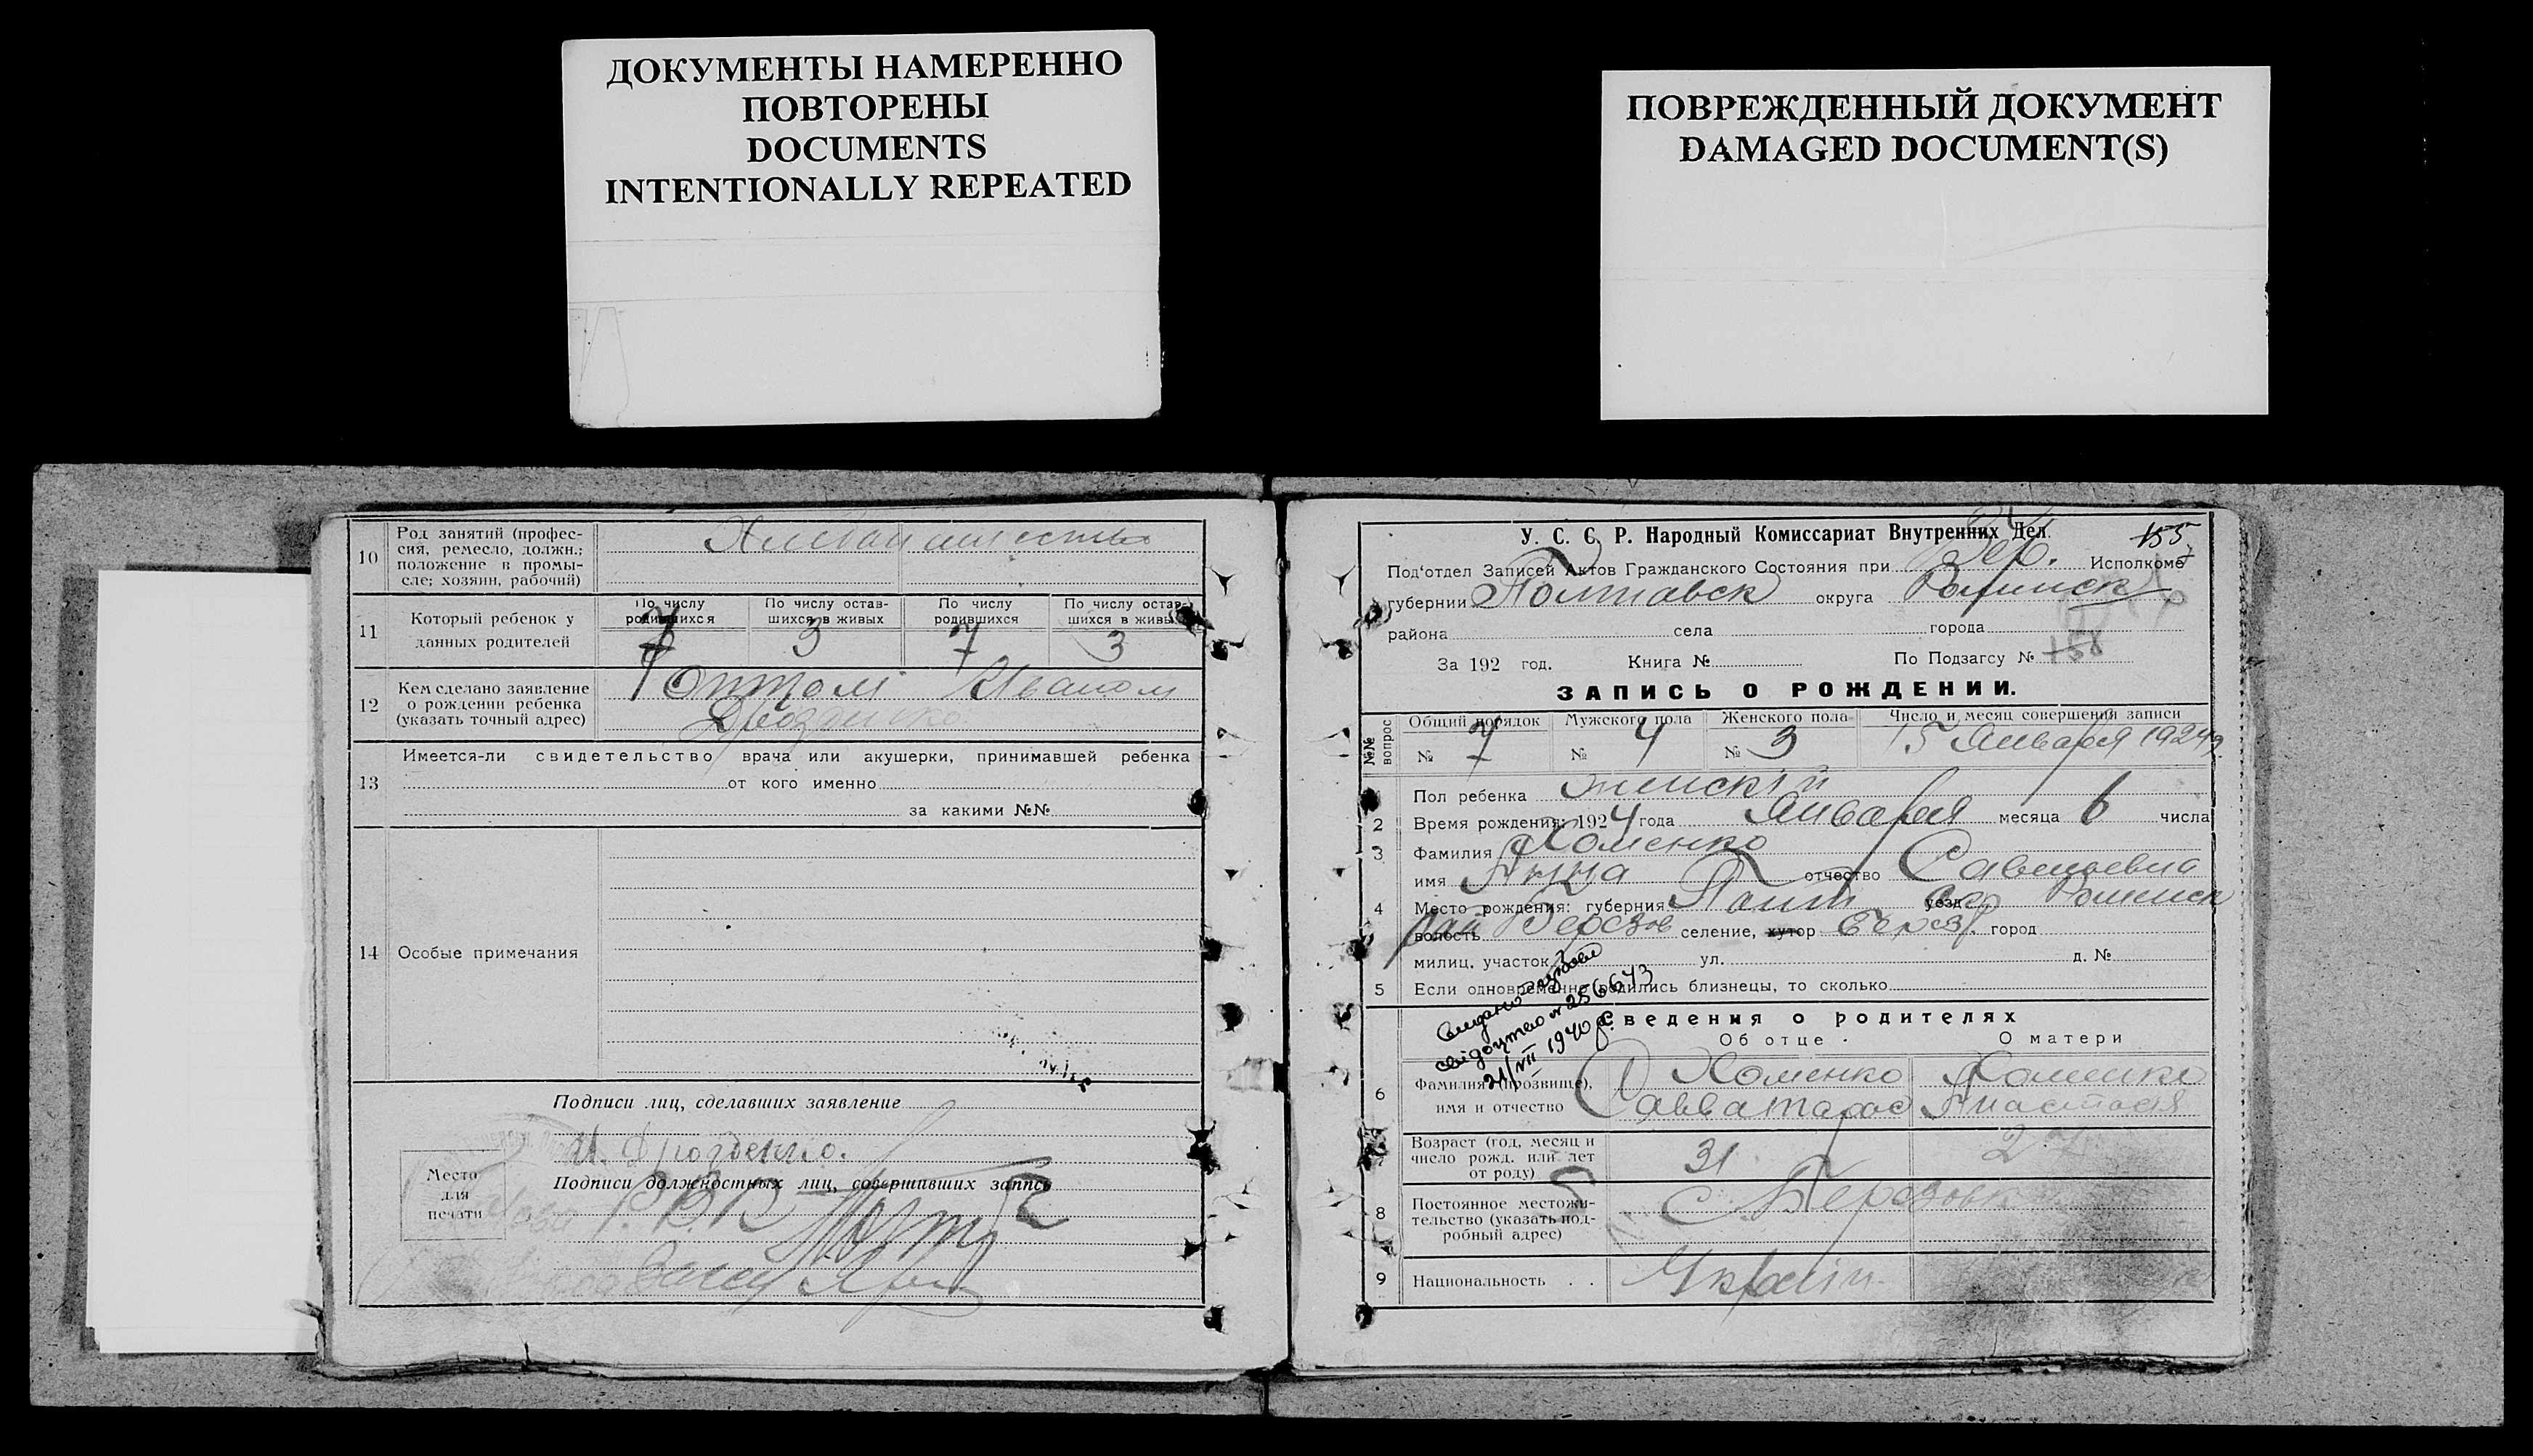 ДОКУМЕНТЫ НАМЕРЕННО
ПОВТОРЕНЫ
DOCUMENTS
INTENTIONALLY REPEATED
ПОВРЕЖДЕННЫЙ ДОКУМЕНТ
DAMAGED DOCUMENT(S)
10 Род занятий (профессия, ремесло, должн.; положение в промысле; хозяин, рабочий)
11 Который ребенок у данных родителей
По числу родившихся По числу оставшихся в живых По числу родившихся По числу оставшихся в живых
7 3 7 3
12 Кем сделано заявление о рождении ребенка (указать точный адрес)
Иваном
13 Имеется-ли свидетельство врача или акушерки, принимавшей ребенка
от кого именно
за какими №№
14 Особые примечания
Подписи лиц, сделавших заявление
Подписи должностных лиц, совершивших запись
Место
для
печати
155
У. С. С. Р. Народный Комиссариат Внутренних Дел
Под'отдел Записей Актов Гражданского Состояния при Исполкоме
губернии Полтавск округа Роменск
района села города
За 192 год. Книга № По Подзагсу № 158
ЗАПИСЬ О РОЖДЕНИИ.
№№ вопрос
Общий порядок Мужского пола Женского пола Число и месяц совершения записи
№ 7 № 4 № 3 15 Января 1924
Пол ребенка женскій
2 Время рождения: 1924 года Января месяца 6 числа
3 Фамилия Хоменко
имя Анна отчество Савельевна
4 Место рождения: губерния Полт уезд Окр Роменск
волость рай Березов селение, хутор Берез. город
милиц. участок ул. д. №
5 Если одновременно родились близнецы, то сколько
свідоцтво № 256673
21/VII 1940 р.
Сведения о родителях
Об отце О матери
6 Фамилия (прозвище), имя и отчество
Хоменко Хоменко
Савва Тарас Анастасия
7 Возраст (год, месяц и число рожд. или лет от роду)
31
8 Постоянное местожительство (указать подробный адрес)
С. Березовк
9 Национальность . . Україн.